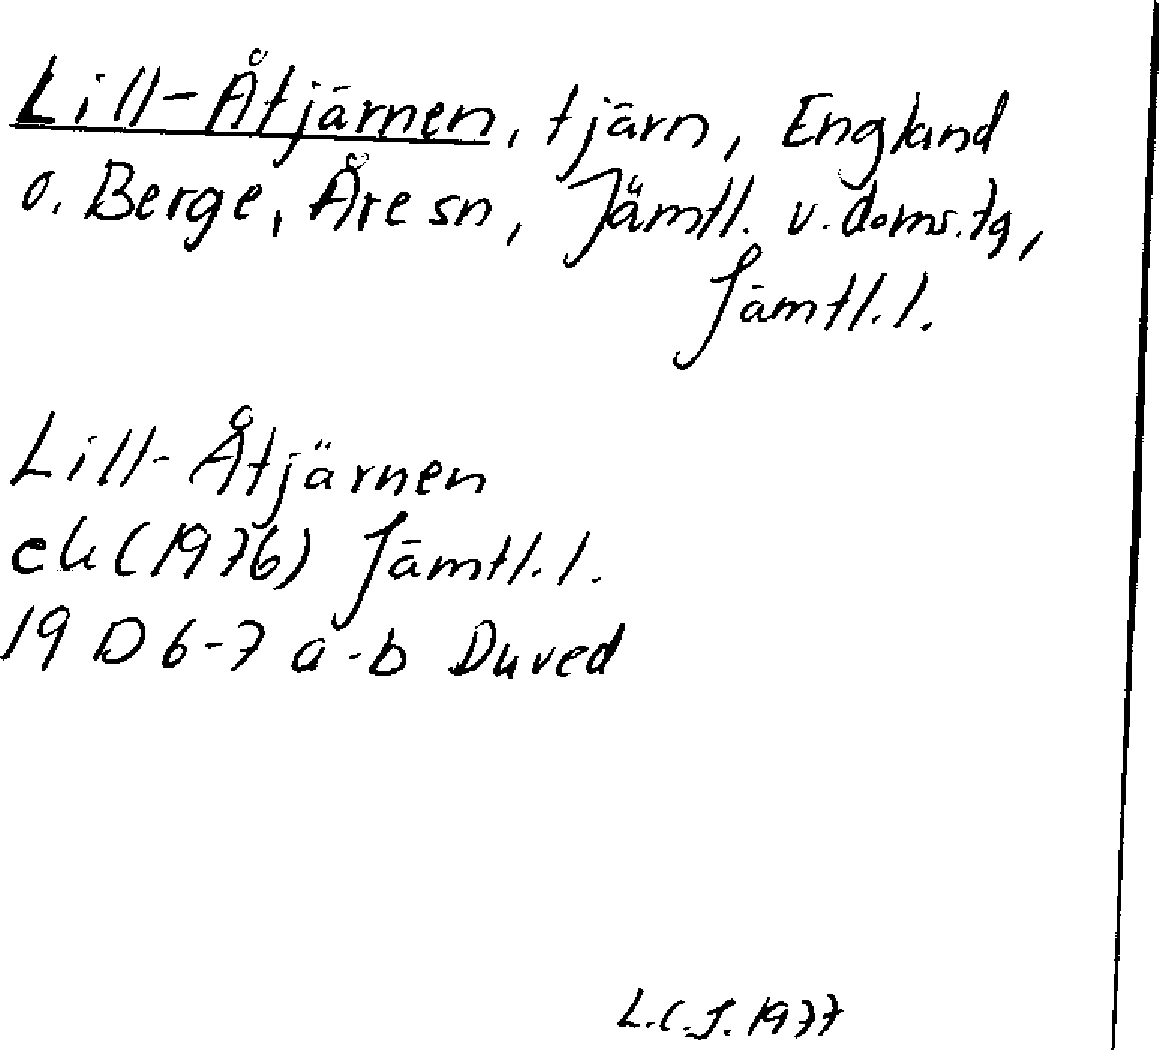 Lill-Åtjärnen, tjärn, England
o. Berge, Åre sn, Jämtl. v. doms. tg,
Jämtl. l.
Lill-Åtjärnen
ek (1976) Jämtl. l.
19 D 6-7 a-b Duved
L.C.J. 1977